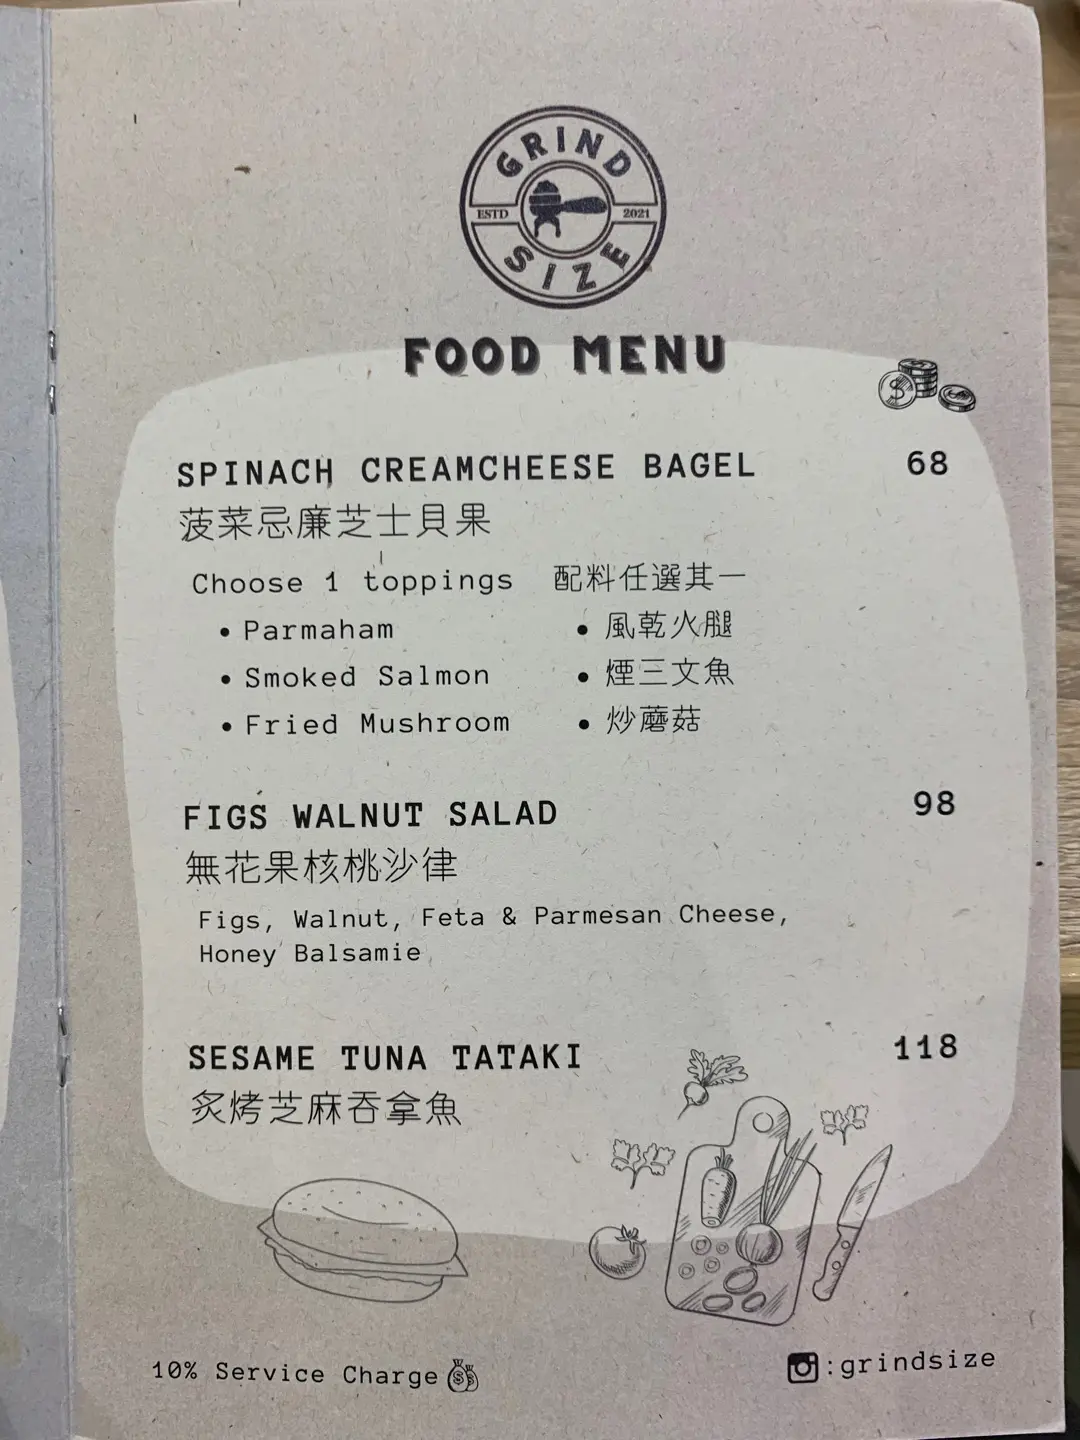 GRIND
ESTD 2021
SIZE
FOOD MENU
SPINACH CREAMCHEESE BAGEL 68
菠菜忌廉芝士貝果
Choose 1 toppings 配料任選其一
• Parmaham • 風乾火腿
• Smoked Salmon • 煙三文魚
• Fried Mushroom • 炒蘑菇
FIGS WALNUT SALAD 98
無花果核桃沙律
Figs, Walnut, Feta & Parmesan Cheese,
Honey Balsamie
SESAME TUNA TATAKI 118
炙烤芝麻吞拿魚
10% Service Charge
:grindsize